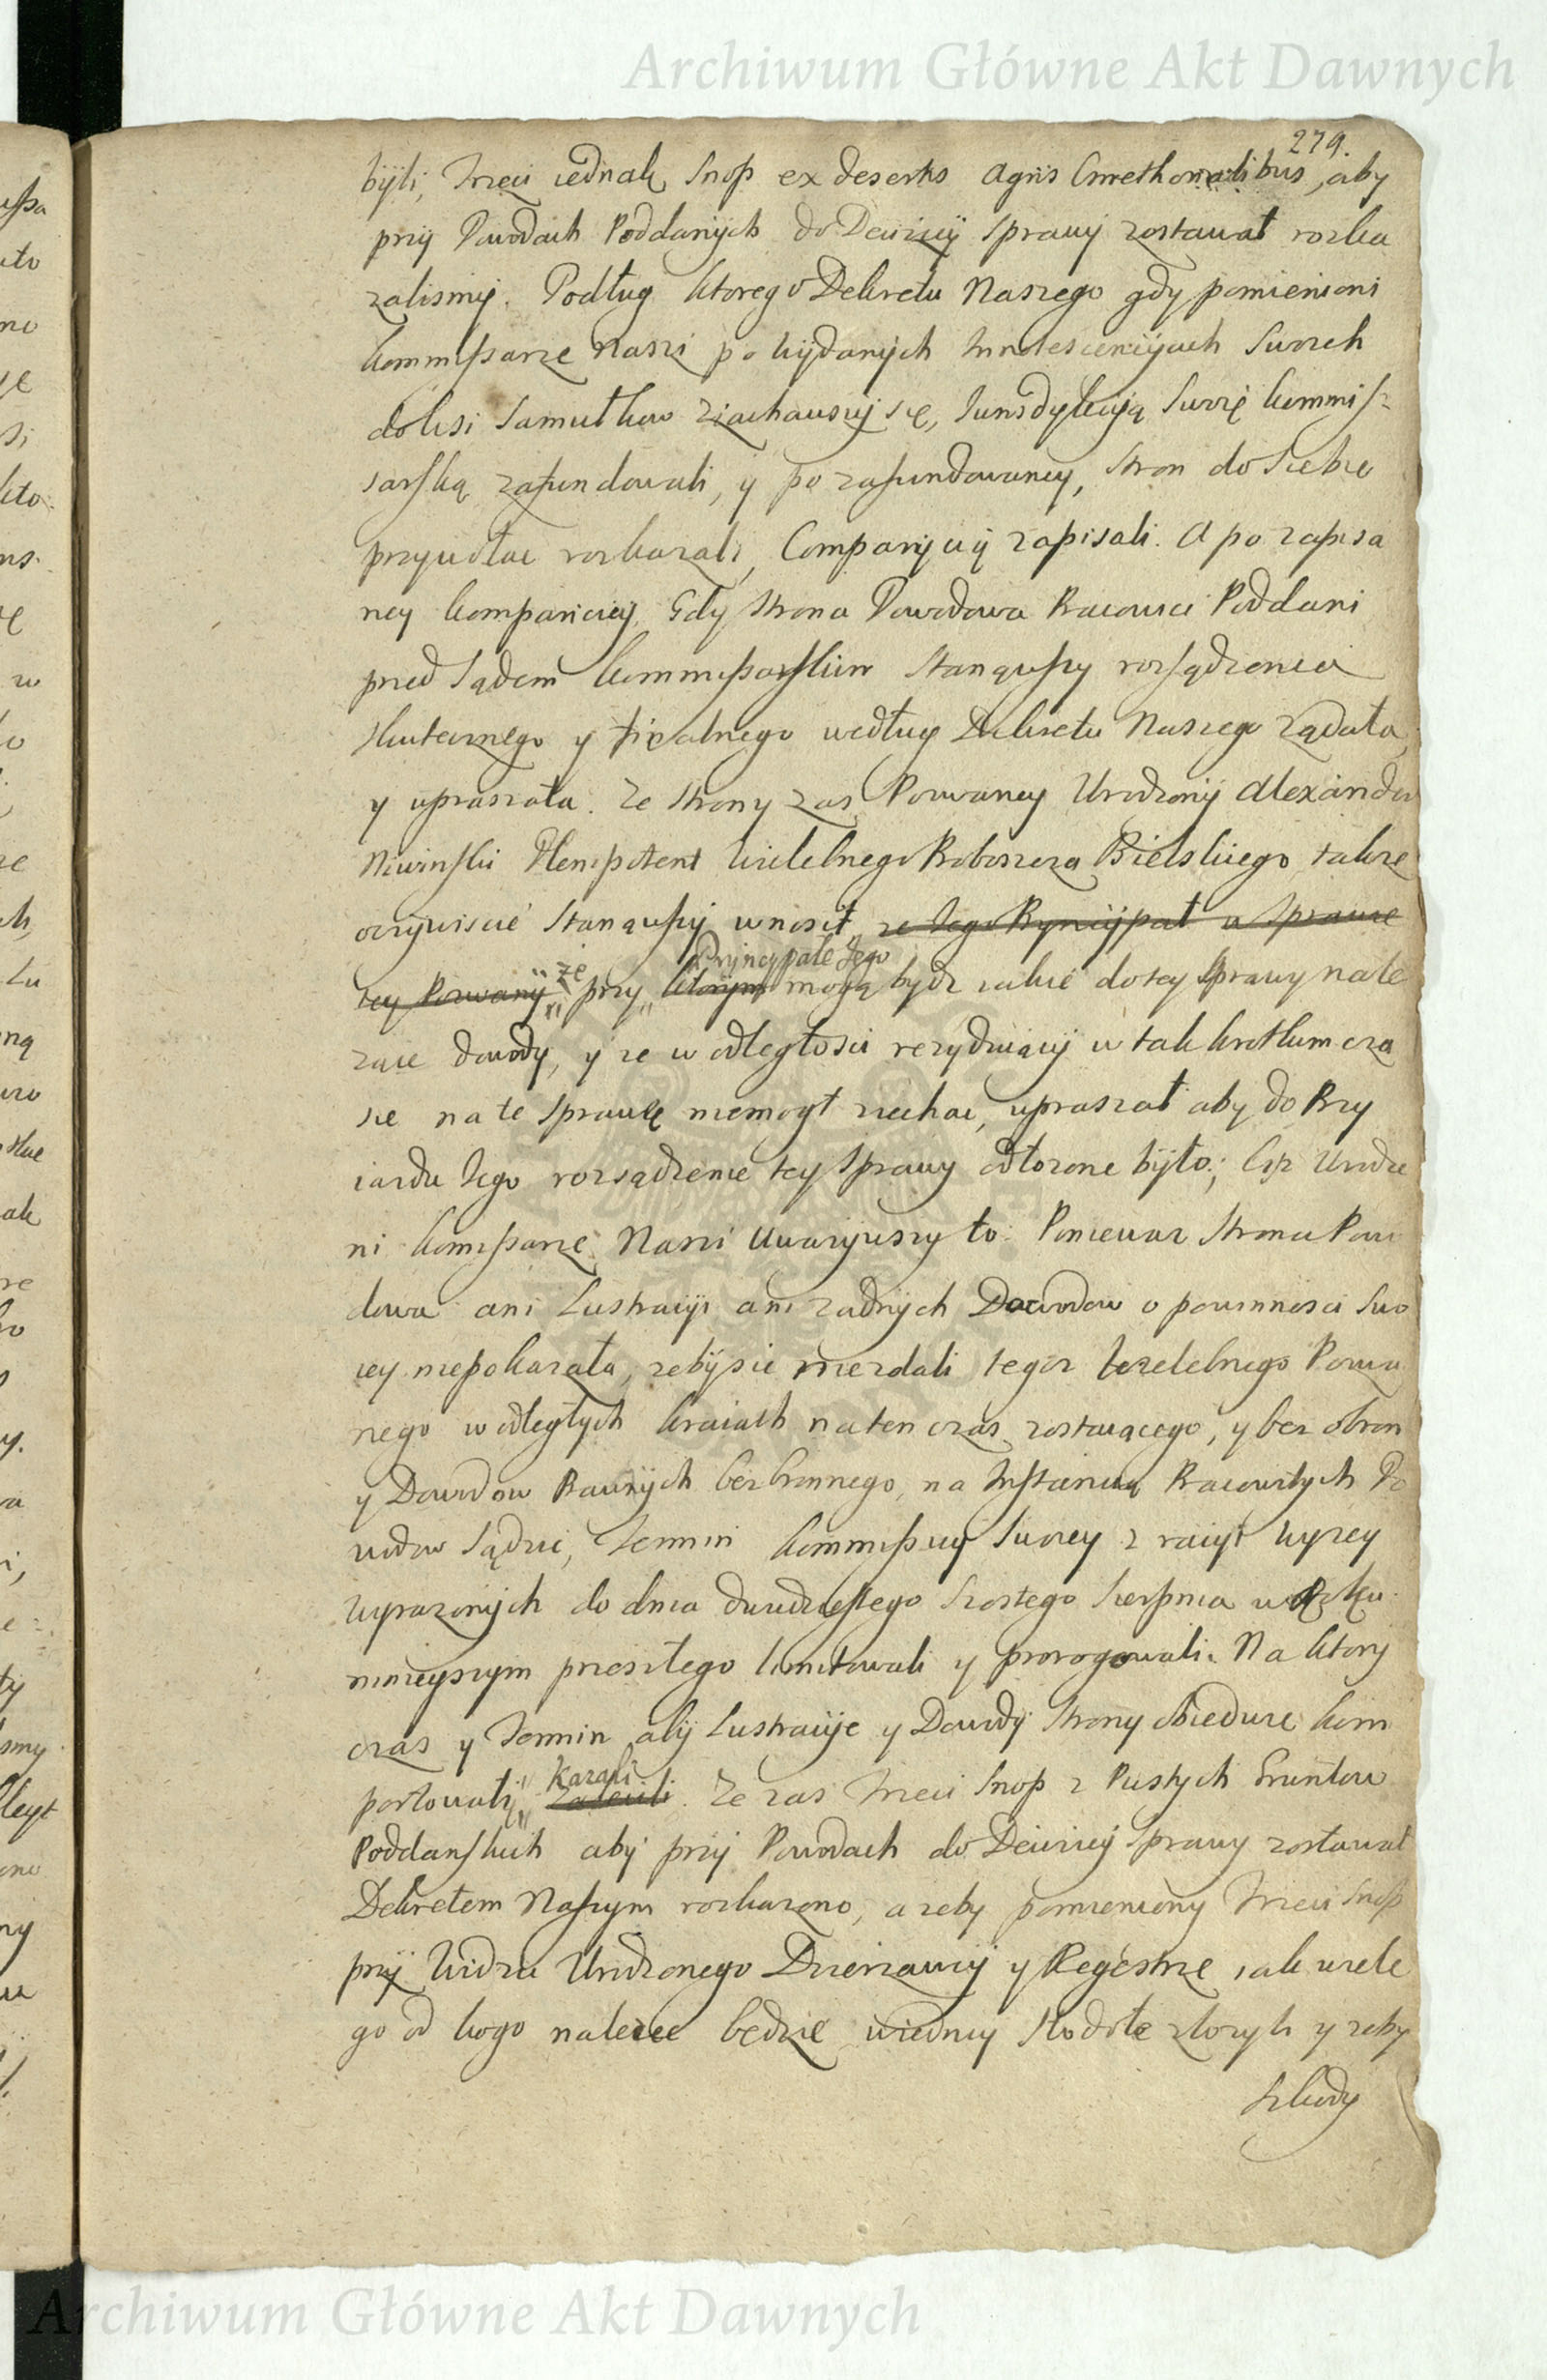 Archiwum Główne Akt Dawnych
279.
byli, Trzeci iednak Snop ex desertis Agris Cmethonalibus, aby
przy Powodach Poddanych do Decizyi Sprawy zostawał rozka
zalismy. Podług ktorego Dekretu Naszego gdy pomienieni
kommissarze Naszi po wydanych Innotescencyach Swoich
do Wsi Samułkow ziachawszy się, Jurisdykcyą Swoię kommis-
sarską zafundowali, y po zafundowaney, Stron do Siebie
przywołac rozkazali, Comparycyą zapisali. A po zapisa
ney kompariciey, Gdy Strona Powodowa Pracowici Poddani
przed Sądem kommissarskim Stanąwszy rozsądzenia
skutecznego y finalnego według Dekretu Naszego żądała,
y upraszała. Ze Strony zas Pozwaney Urodzony Alexander
Niwinski Plenipotent Wielebnego Proboszcza Bielskiego, także
oczywiscie Stanąwszy wnosił, ze Jego Pryncypał w Sprawie
tey Pozwany że przy ktorym Pryncypale Jego mogą bydz iakie do tey Sprawy nale
zące dowody, y ze w odległosci rezyduiący w tak krotkim cza
sie na te Sprawę niemogł ziechac, upraszał aby do Przy
iazdu Jego rozsądzenie tey Sprawy odłozone było; Ciż Urodze
ni kommissarze Naszi Uwazywszy to: Poniewaz Strona Powo
dowa ani Lustracyi ani zadnych Dowodow o powinnosci Swo
iey niepokazała, zeby sie niezdali tegoz Wielebnego Pozwa
nego w odległych kraiach na ten czas zostaiącego, y bez obron
y Dowodow Prawnych bezbronnego, na Instancyą Pracowitych Po
wodow Sądzic, Termin kommissyi Swoiey z racyi wyzey
wyrazonych do dnia dwudziestego Szostego Sierpnia w Roku
ninieyszym przeszłego limitowali y prorogowali. Na ktory
czas y Termin aby Lustracye y Dowody Strony obiedwie kom
portowały, zalecili Kazali. Ze zas Trzeci Snop z Pustych Gruntow
Poddanskich aby przy Powodach do Decizyi Sprawy zostawał
Dekretem Naszym rozkazono, a zeby pomieniony Trzeci Snop
przy Widzu Urodzonego Dzierzawcy y Regestrze iak wiele
go od kogo nalezec będzie w iedney Stodole złozyli y zeby
szkody
Archiwum Główne Akt Dawnych